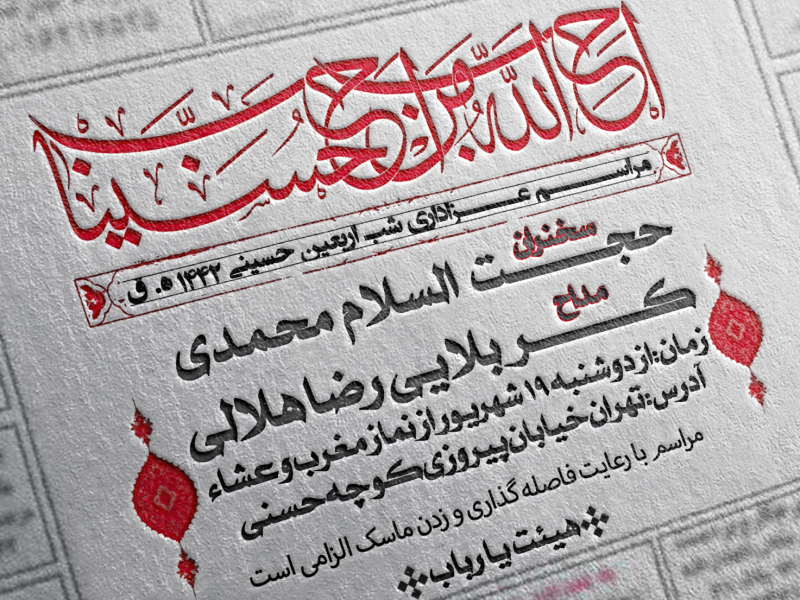 احب الله من احب حسینا
مراسم عزاداری شب اربعین حسینی ۱۴۴۲ ه.ق
سخنران
حجت السلام محمدی
مداح
کربلایی رضا هلالی
زمان: از دوشنبه ۱۹ شهریور از نماز مغرب و عشاء
آدرس: تهران خیابان پیروزی کوچه حسنی
مراسم با رعایت فاصله گذاری و زدن ماسک الزامی است
هیئت یا رباب